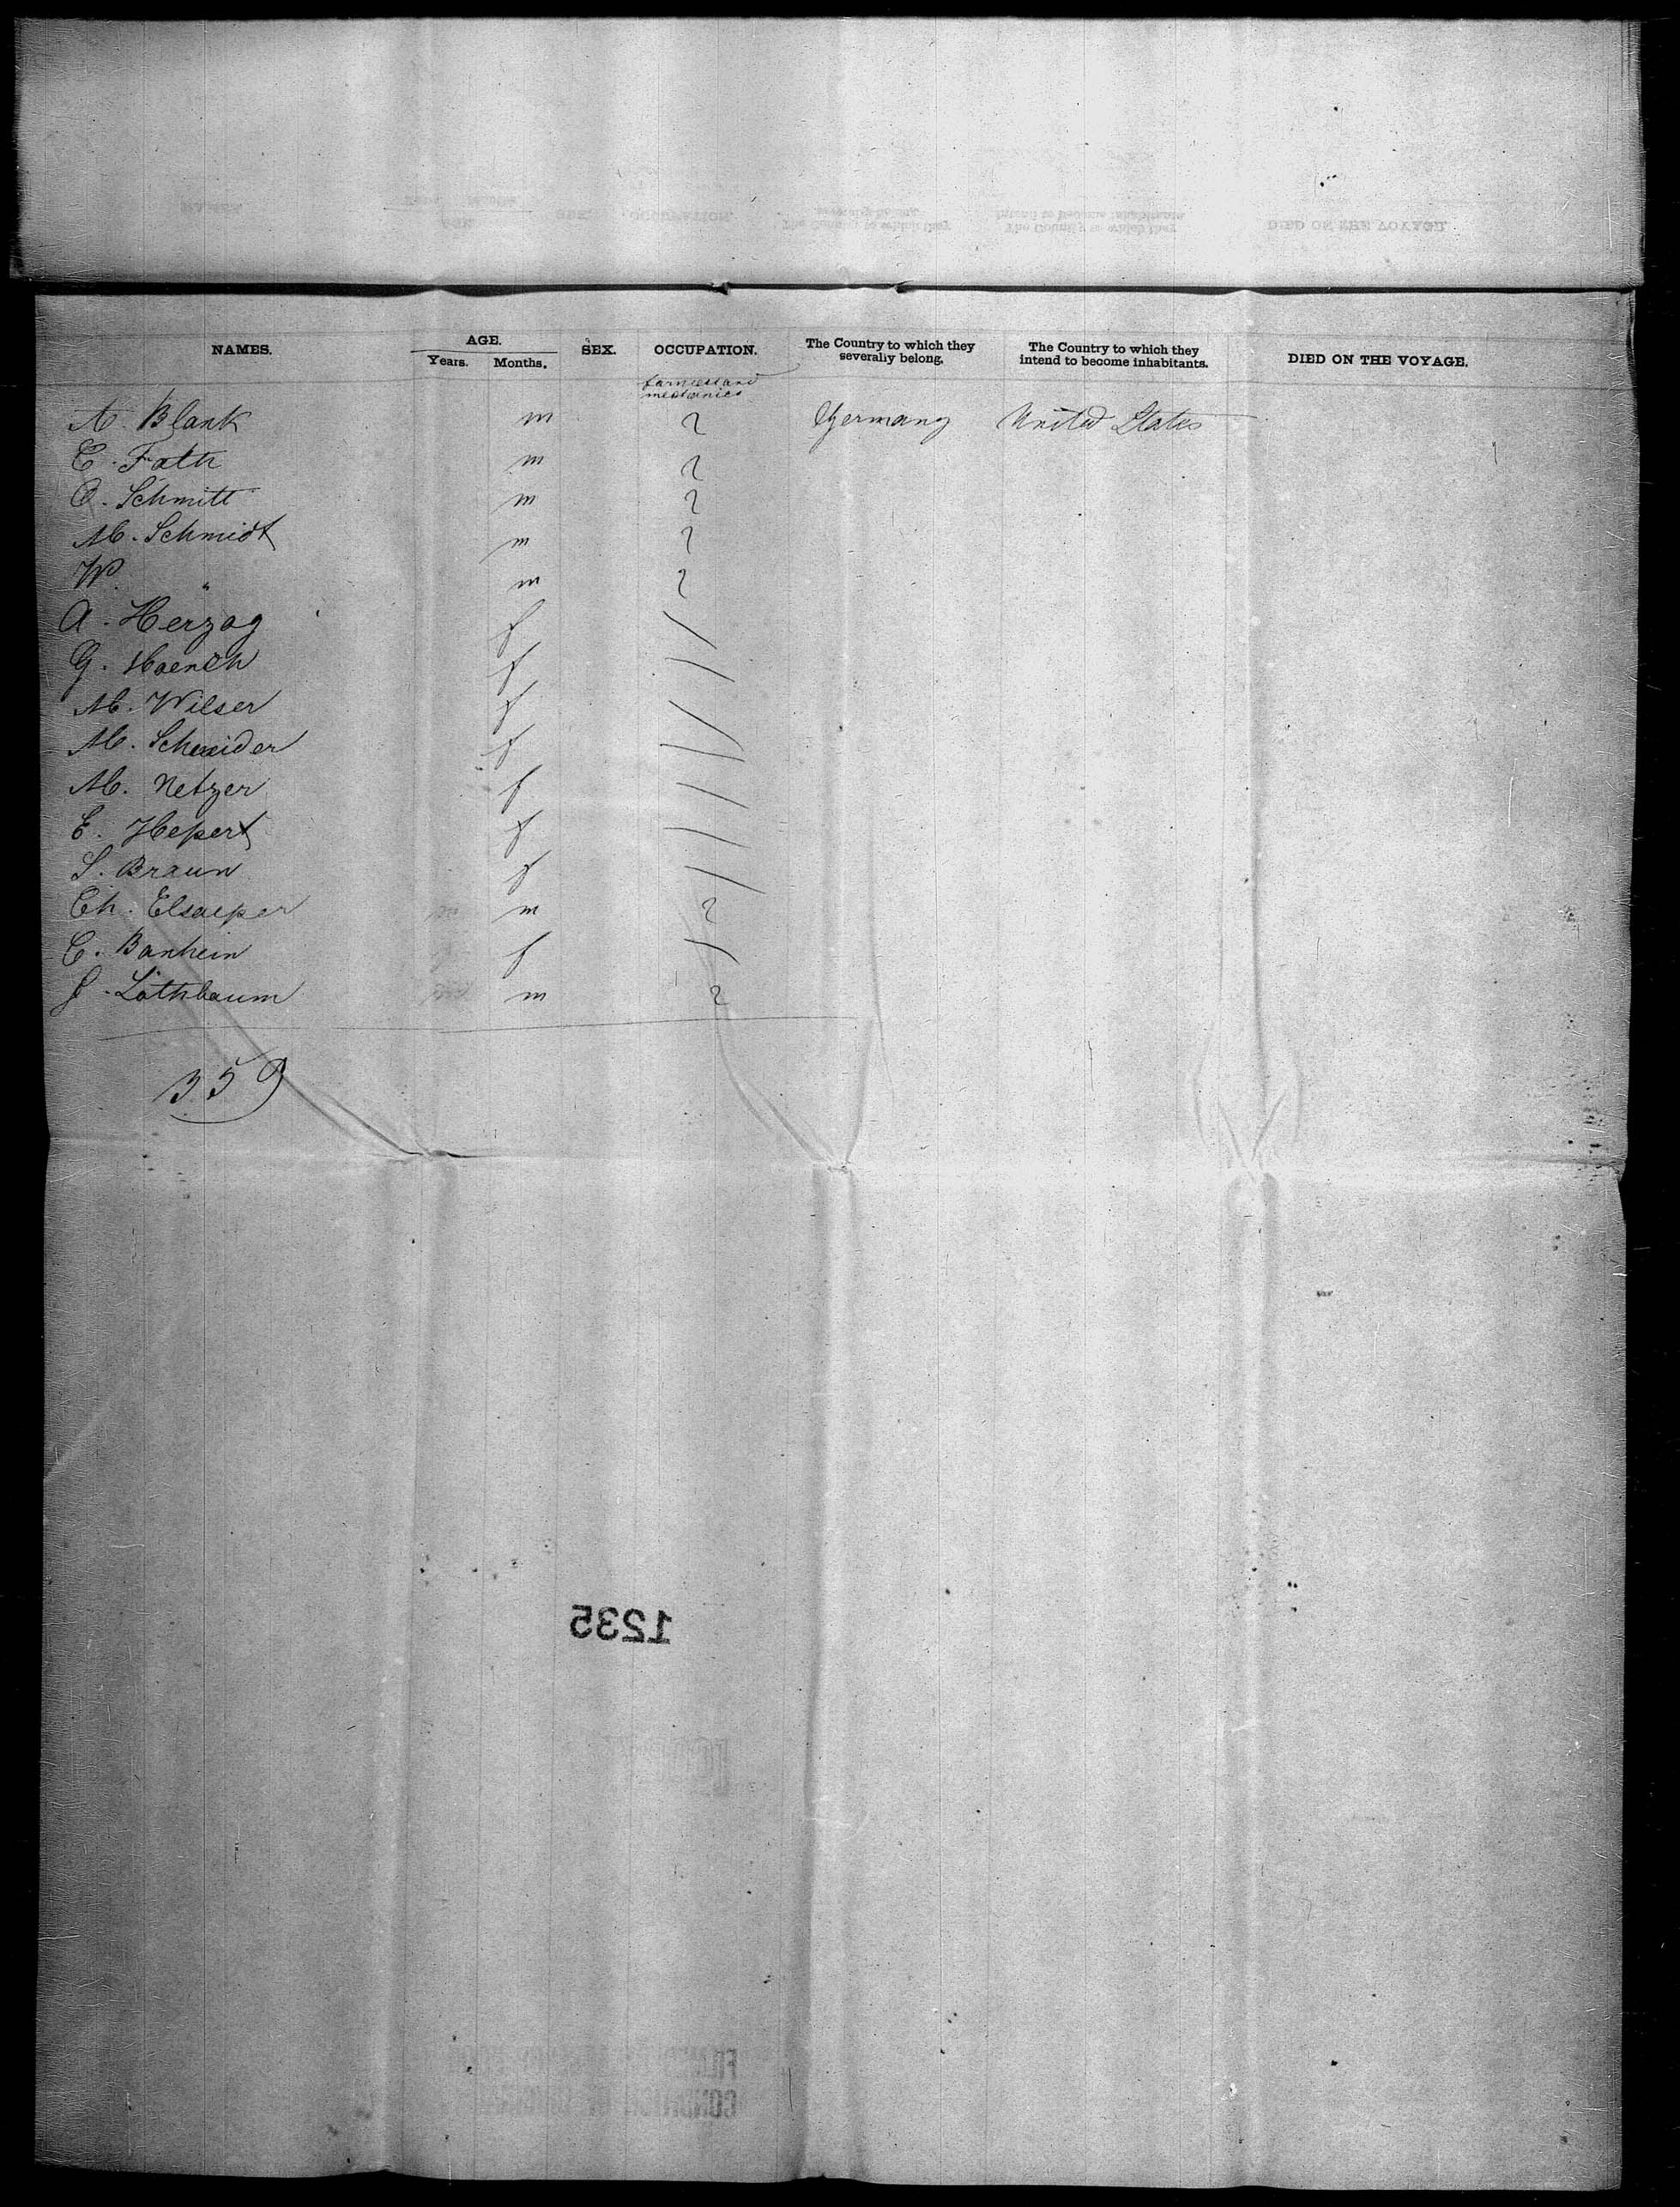 NAMES. AGE. Years. Months. SEX. OCCUPATION. The Country to which they severally belong. The Country to which they intend to become inhabitants. DIED ON THE VOYAGE.
farmers and
mechanics
A. Blank m Germany United States
C. Fath m
O. Schmitt m
M. Schmidt m
W. " m
A. Herzog f
G. Haench f
M. Wilser f
M. Schneider f
M. Netzer f
E. Hepert f
S. Braun f
Ch. Elsaesser m
C. Banhein f
J. Lothbaum m
359
1235